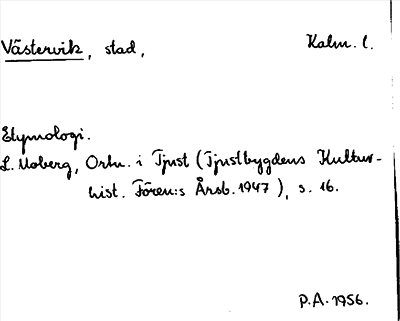 Västervik, stad, Kalm. l.
Etymologi.
L. Moberg, Ortn. i Tjust (Tjustbygdens Kultur-
hist. Fören:s Årsb. 1947), s. 16.
P.A. 1956.